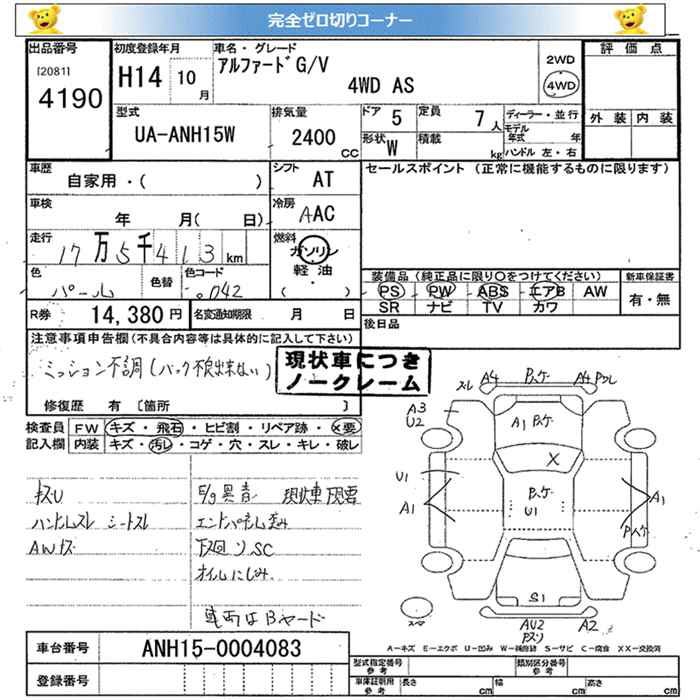 完全ゼロ切りコーナー
出品番号 初度登録年月 車名・グレード 評価点
[2081] 4190 H14 10月 アルファード G/V 4WD AS 2WD 4WD
外装 内装
型式 UA-ANH15W 排気量 2400 CC ドア 5 定員 7人 ディーラー・並行
形状 W 積載 kg モデル年式 年
ハンドル 左・右
車歴 自家用・( ) シフト AT セールスポイント (正常に機能するものに限ります)
車検 年 月( 日) 冷房 AAC
走行 17万5千413km 燃料 ガソリン 軽油 ( )
色 パール 色替 色コード 042
装備品 (純正品に限り○をつけてください) 新車保証書
PS PW ABS エアB AW 有・無
SR ナビ TV カワ
R券 14,380円 名変通知期限 月 日 後日品
注意事項申告欄 (不具合内容等は具体的に記入して下さい)
ミッション不調(バック不良出来ない)
現状車につき
ノークレーム
修復歴 有 [箇所 ]
検査員記入欄 FW キズ・飛石・ヒビ割・リペア跡・×要
内装 キズ・汚レ・コゲ・穴・スレ・キレ・破レ
キズU E/g異音 現状車 現要
ハンドルスレ シートスレ
AWキズ 下廻りSC
オイルにじみ
車両はBヤード
スレ A4 Pスケ A4
A3 U2 A1 Pスケ
X
U1 A1 U1 A1
S1
AU2 A2
車台番号 ANH15-0004083
A-キズ E-エクボ U-凹み W-補修跡 S-サビ C-腐食 XX-交換済
登録番号 型式指定番号 参考 類別区分番号 参考
車庫証明用 参考 長さ cm 幅 cm 高さ cm